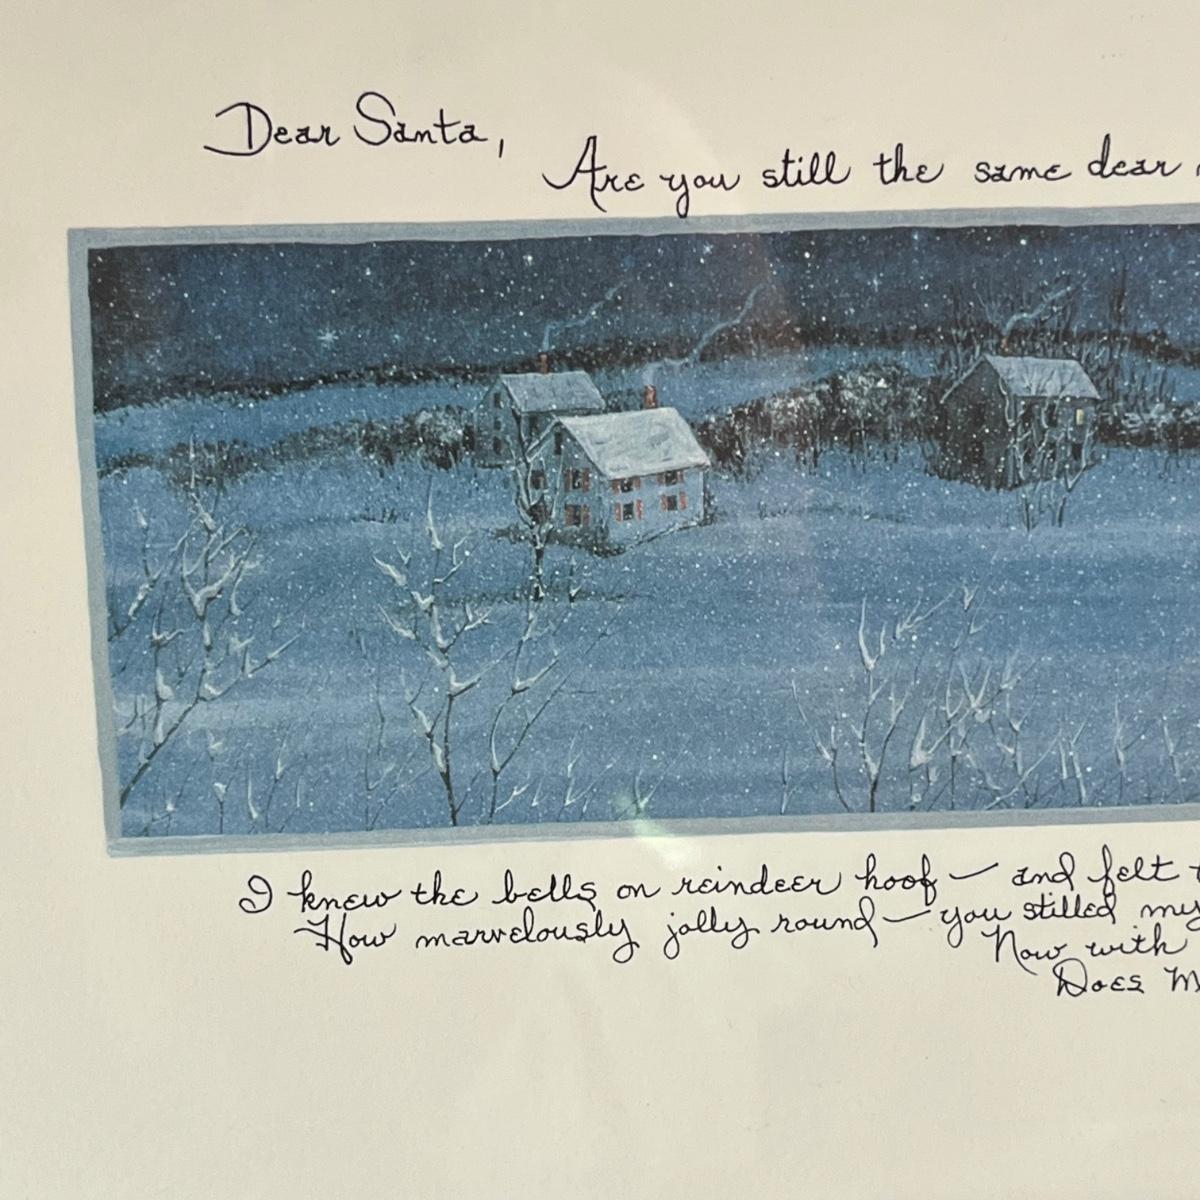 Dear Santa,
Are you still the same dear
I knew the bells on reindeer hoof — and felt
How marvelously jolly round — you stilled my
Now with
Does